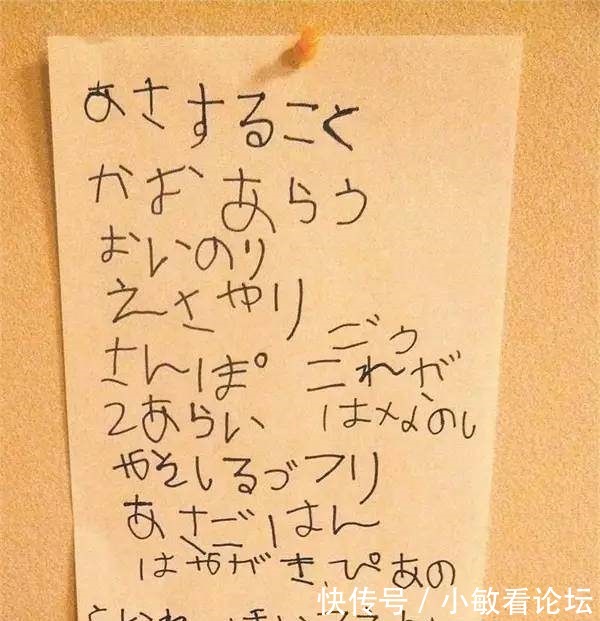 あさすること
かおあらう
おいのり
えさやり
さんぽ
2あらい
ごう
これが
はなよのし
みそしるづフリ
あさごはん
はやがきぴあの
快传号/小敏看论坛